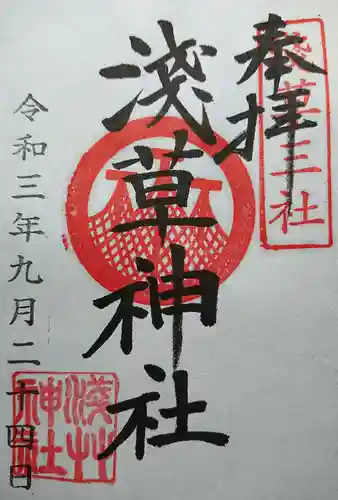 奉拝
淺草三社
淺草神社
令和三年九月二十四日
淺草神社